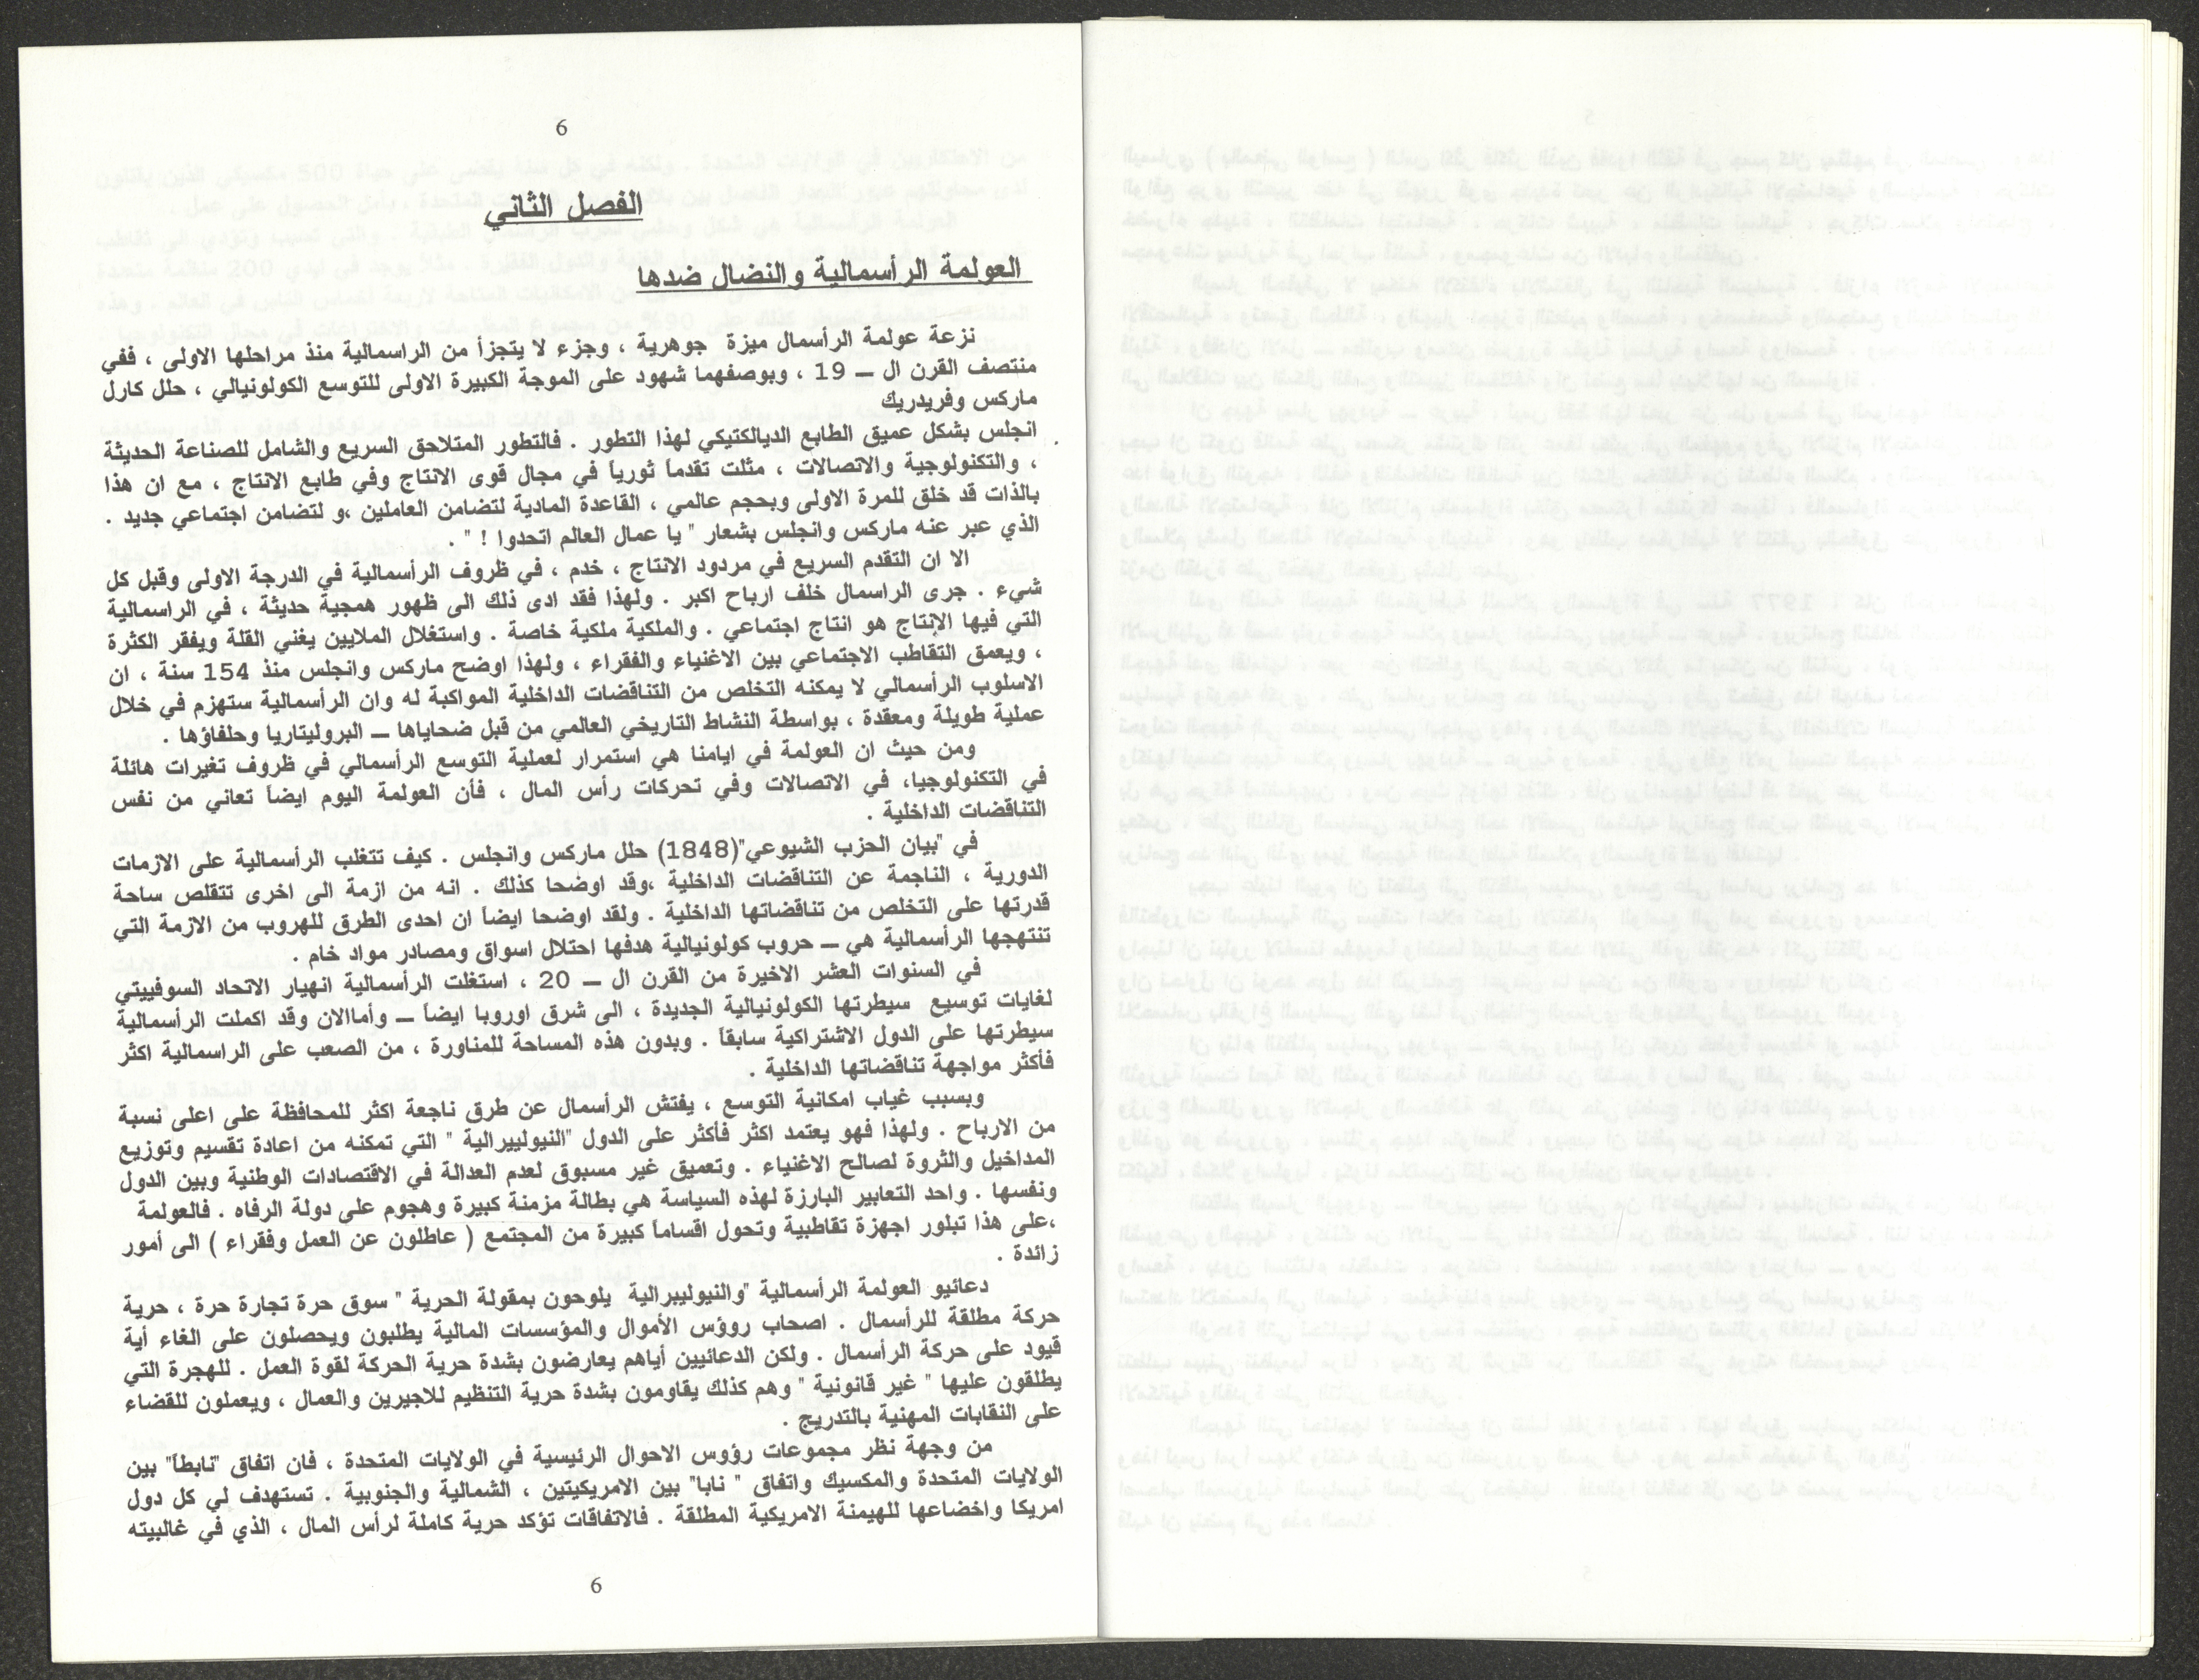 6
الفصل الثاني
العولمة الرأسمالية والنضال ضدها
نزعة عولمة الرأسمال ميزة جوهرية ، وجزء لا يتجزأ من الراسمالية منذ مراحلها الاولى ، ففي
منتصف القرن ال – 19 ، وبوصفهما شهود على الموجة الكبيرة الاولى للتوسع الكولونيالي ، حلل كارل
ماركس وفريدريك
انجلس بشكل عميق الطابع الديالكتيكي لهذا التطور . فالتطور المتلاحق السريع والشامل للصناعة الحديثة
، والتكنولوجية والاتصالات ، مثلت تقدماً ثورياً في مجال قوى الانتاج وفي طابع الانتاج ، مع ان هذا
بالذات قد خلق للمرة الاولى وبحجم عالمي ، القاعدة المادية لتضامن العاملين ،و لتضامن اجتماعي جديد .
الذي عبر عنه ماركس وانجلس بشعار " يا عمال العالم اتحدوا ! " .
الا ان التقدم السريع في مردود الانتاج ، خدم ، في ظروف الرأسمالية في الدرجة الاولى وقبل كل
شيء . جرى الراسمال خلف ارباح اكبر . ولهذا فقد ادى ذلك الى ظهور همجية حديثة ، في الراسمالية
التي فيها الإنتاج هو انتاج اجتماعي . والملكية ملكية خاصة . واستغلال الملايين يغني القلة ويفقر الكثرة
، ويعمق التقاطب الاجتماعي بين الاغنياء والفقراء ، ولهذا اوضح ماركس وانجلس منذ 154 سنة ، ان
الاسلوب الرأسمالي لا يمكنه التخلص من التناقضات الداخلية المواكبة له وان الرأسمالية ستهزم في خلال
عملية طويلة ومعقدة ، بواسطة النشاط التاريخي العالمي من قبل ضحاياها – البروليتاريا وحلفاؤها .
ومن حيث ان العولمة في ايامنا هي استمرار لعملية التوسع الرأسمالي في ظروف تغيرات هائلة
في التكنولوجيا، في الاتصالات وفي تحركات رأس المال ، فأن العولمة اليوم ايضاً تعاني من نفس
التناقضات الداخلية .
في "بيان الحزب الشيوعي"(1848) حلل ماركس وانجلس . كيف تتغلب الرأسمالية على الازمات
الدورية ، الناجمة عن التناقضات الداخلية ،وقد اوضحا كذلك . انه من ازمة الى اخرى تتقلص ساحة
قدرتها على التخلص من تناقضاتها الداخلية . ولقد اوضحا ايضاً ان احدى الطرق للهروب من الازمة التي
تنتهجها الرأسمالية هي – حروب كولونيالية هدفها احتلال اسواق ومصادر مواد خام .
في السنوات العشر الاخيرة من القرن ال – 20 ، استغلت الرأسمالية انهيار الاتحاد السوفييتي
لغايات توسيع سيطرتها الكولونيالية الجديدة ، الى شرق اوروبا ايضاً – وأماالان وقد اكملت الرأسمالية
سيطرتها على الدول الاشتراكية سابقاً . وبدون هذه المساحة للمناورة ، من الصعب على الراسمالية اكثر
فأكثر مواجهة تناقضاتها الداخلية .
وبسبب غياب امكانية التوسع ، يفتش الرأسمال عن طرق ناجعة اكثر للمحافظة على اعلى نسبة
من الارباح . ولهذا فهو يعتمد اكثر فأكثر على الدول "النيوليبرالية " التي تمكنه من اعادة تقسيم وتوزيع
المداخيل والثروة لصالح الاغنياء . وتعميق غير مسبوق لعدم العدالة في الاقتصادات الوطنية وبين الدول
ونفسها . واحد التعابير البارزة لهذه السياسة هي بطالة مزمنة كبيرة وهجوم على دولة الرفاه . فالعولمة
،على هذا تبلور اجهزة تقاطبية وتحول اقساماً كبيرة من المجتمع ( عاطلون عن العمل وفقراء ) الى أمور
زائدة .
دعائيو العولمة الرأسمالية "والنيوليبرالية يلوحون بمقولة الحرية " سوق حرة تجارة حرة ، حرية
حركة مطلقة للرأسمال . اصحاب رؤوس الأموال والمؤسسات المالية يطلبون ويحصلون على الغاء أية
قيود على حركة الرأسمال . ولكن الدعائيين أياهم يعارضون بشدة حرية الحركة لقوة العمل . للهجرة التي
يطلقون عليها " غير قانونية " وهم كذلك يقاومون بشدة حرية التنظيم للاجيرين والعمال ، ويعملون للقضاء
على النقابات المهنية بالتدريج .
من وجهة نظر مجموعات رؤوس الاحوال الرئيسية في الولايات المتحدة ، فان اتفاق "نابطاً" بين
الولايات المتحدة والمكسيك واتفاق " نابا" بين الامريكيتين ، الشمالية والجنوبية . تستهدف لي كل دول
امريكا واخضاعها للهيمنة الامريكية المطلقة . فالاتفاقات تؤكد حرية كاملة لرأس المال ، الذي في غالبيته
6